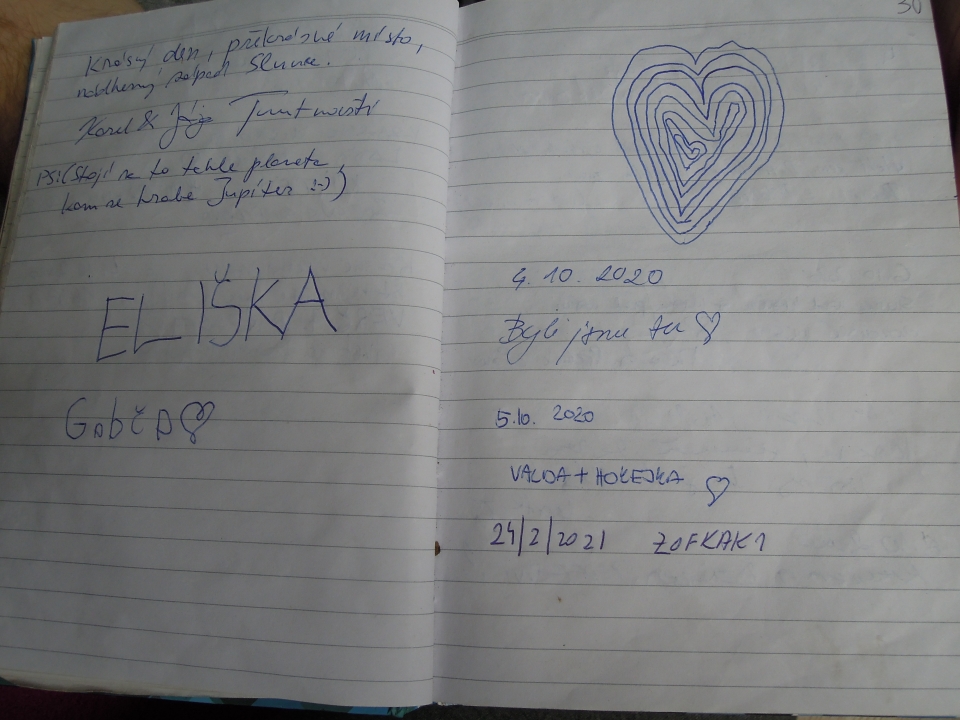 Krásný den, překrásné místo,
nádherný západ Slunce.
Karel &
PS: (Stojí za to tahle planeta,
kam se hrabe Jupiter :-))
ELIŠKA
GabčA
30
4. 10. 2020
Byli jsme tu
5.10. 2020
VALDA + HOKEJKA
24/2/2021 ZOFKAK1